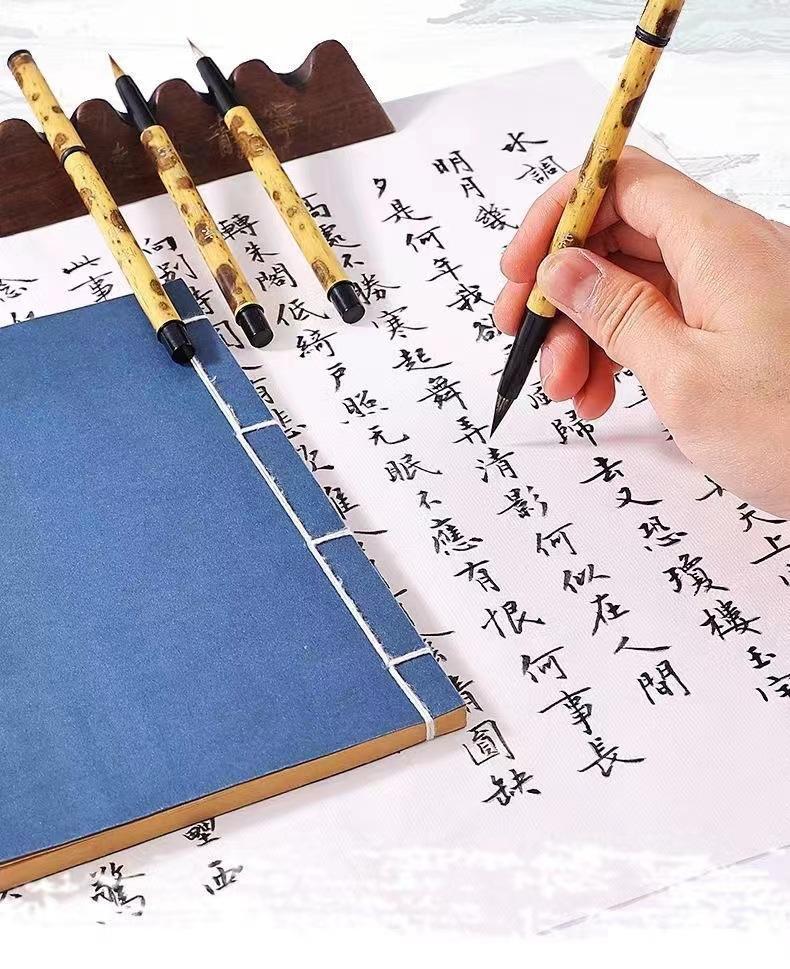 水調
明月幾天上
夕是何年我欲風歸去又恐瓊樓玉宇
高處不勝寒起舞弄清影何似在人間
轉朱閣低綺戶照无眠不應有恨何事長
向別時有悲歡離晴圓缺
此事
念
西
驚
寧靜